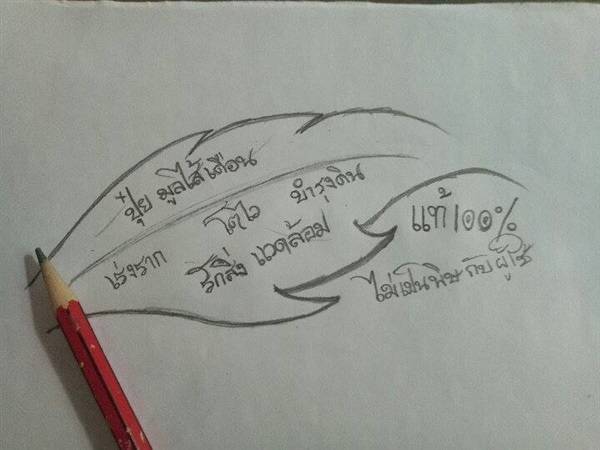 ปุ๋ย มูลไส้เดือน
โตไว บำรุงดิน
เร่งราก รักสิ่งแวดล้อม
แท้ 100%
ไม่เป็นพิษกับผู้ใช้